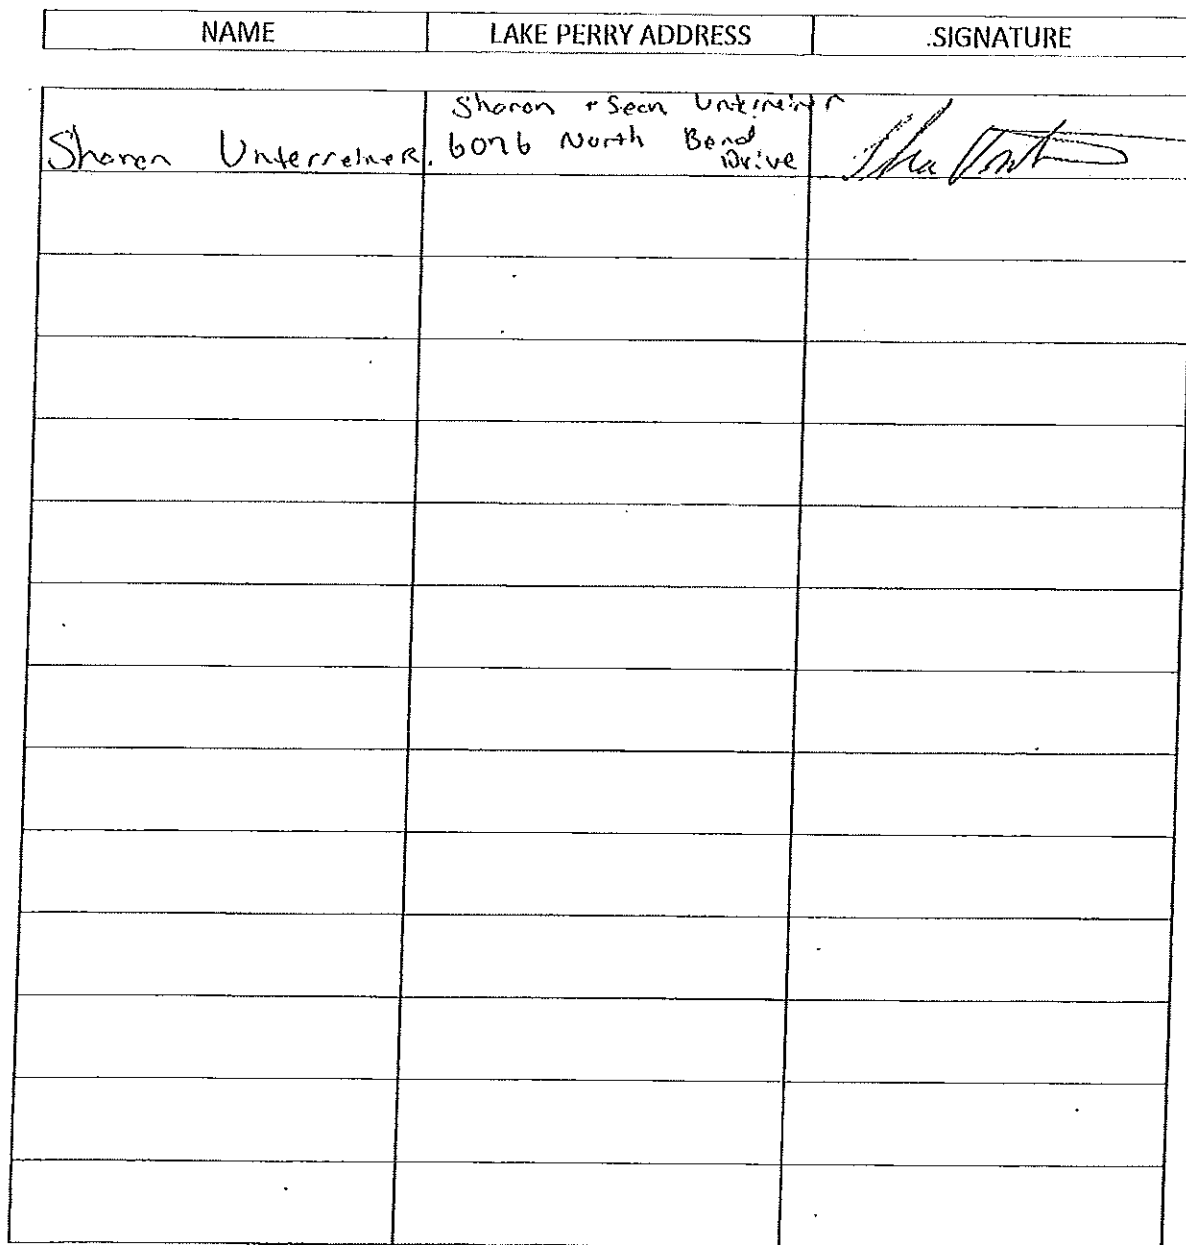 NAME LAKE PERRY ADDRESS .SIGNATURE
Sharon + Sean Unterreiner
Sharon Unterreiner. 6076 North Bend
Drive